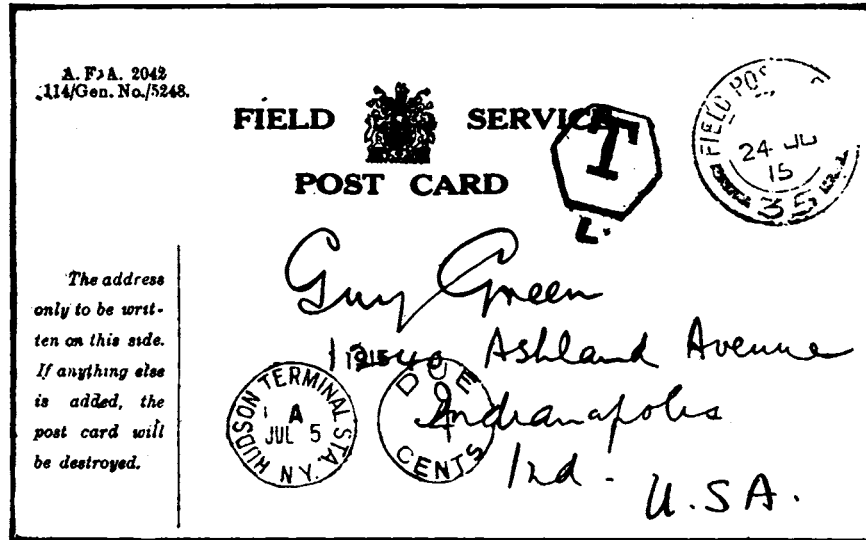 A. F. A. 2042
114/Gen. No./5248.
FIELD SERVICE
POST CARD
T
L.
FIELD POS
24 JU
15
35
The address
only to be writ-
ten on this side.
If anything else
is added, the
post card will
be destroyed.
Guy Green
Ashland Avenue
Indianapolis
Ind.
U.S.A.
HUDSON TERMINAL STA. N.Y.
A
JUL 5
1915
DUE
CENTS